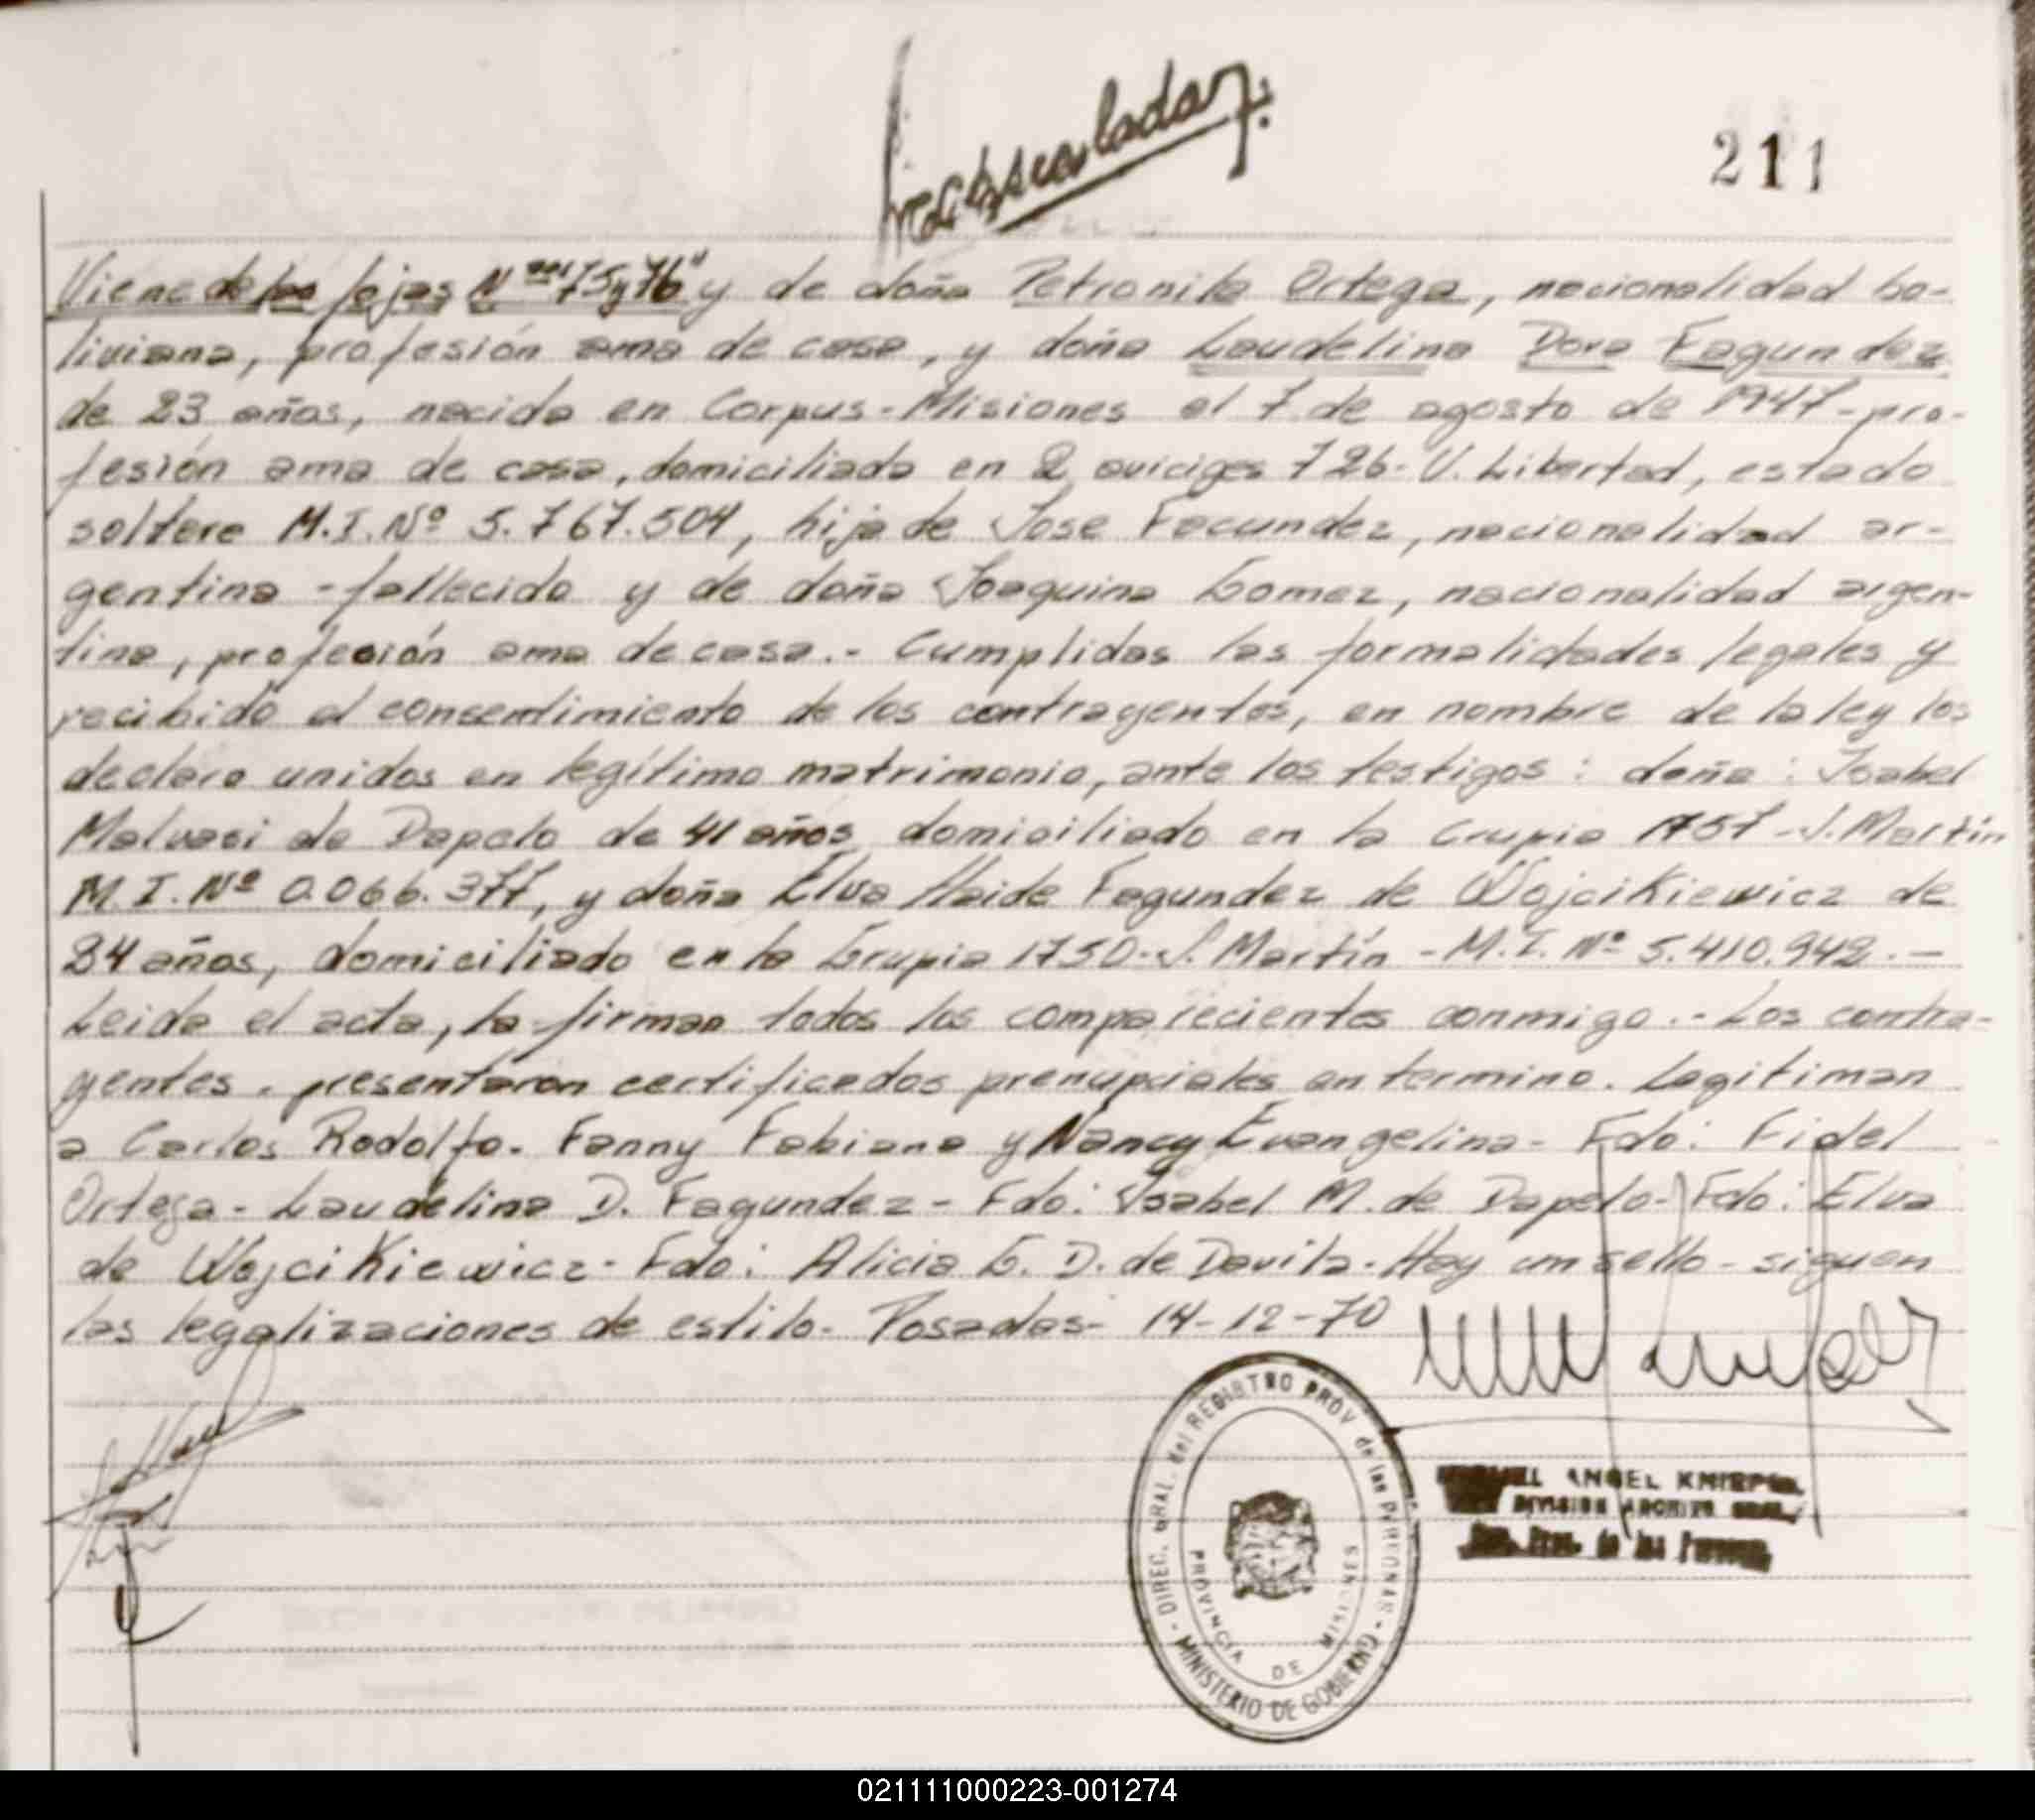 211
Viene de las fojas Nros 75 y 76" y de doña Petronila Ortega, nacionalidad bo-
liviana, profesión ama de casa, y doña Laudelina Dora Fagundez
de 23 años, nacida en Corpus-Misiones el 7 de agosto de 1947-pro-
fesión ama de casa, domiciliada en 726-V. Libertad, estado
soltera M.I.Nº 5.767.504, hija de Jose Facundez, nacionalidad ar-
gentina - fallecido y de doña Joaquina Gomez, nacionalidad argen-
tina, profesión ama de casa.- Cumplidas las formalidades legales y
recibido el consentimiento de los contragentes, en nombre de la ley los
declaro unidos en legítimo matrimonio, ante los testigos: doña: Isabel
Malvasi de Dapelo de 41 años domiciliado en la 1757-S. Martín
M.I.Nº 0.066.377, y doña Elva Haide Fagundez de WojciKiewicz de
24 años, domiciliado en la Grupia 1750-S. Martín - M.I. Nº 5.410.942.-
Leida el acta, la firman todos los comparecientes conmigo.- Los contra-
gentes. presentaron certificados prenupciales en termino. Legitiman
a Carlos Rodolfo. Fanny Fabiana y Nancy Evangelina- Fdo: Fidel
Ortega- Laudelina D. Fagundez- Fdo: Isabel M. de Dapelo- Fdo: Elva
de WojciKiewicz- Fdo: Alicia G. D. de Davila. Hay un sello - siguen
las legalizaciones de estilo- Posadas- 14-12-70
DIREC. GRAL. del REGISTRO PROV. de las PERSONAS
PROVINCIA DE MISIONES
MINISTERIO DE GOBIERNO
ANGEL
DIVISION ARCHIVO GRAL.
de las Personas
021111000223-001274